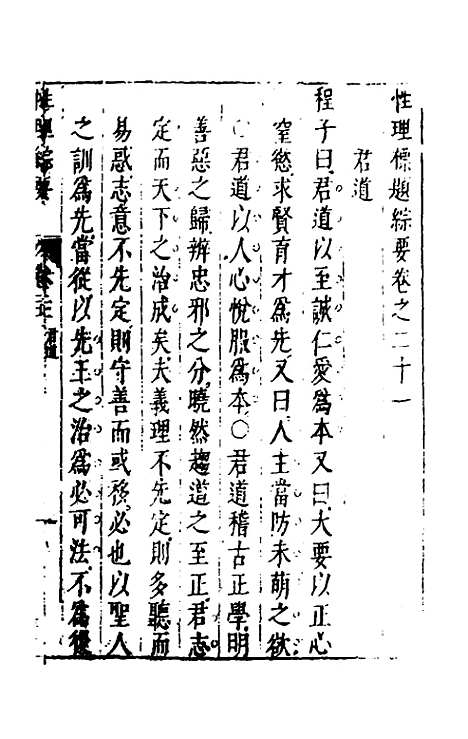 性理標題綜要卷之二十一
君道
程子曰君道以至誠仁愛爲本又曰大要以正心
窒慾求賢育才爲先又曰人主當防未萌之欲
○君道以人心悅服爲本○君道稽古正學明
善惡之歸辨忠邪之分曉然趨道之至正君志
定而天下之治成矣夫義理不先定則多聽而
易惑志意不先定則守善而或移必也以聖人
之訓爲先當從以先王之治爲必可法不爲後
性理綜要
君道
一